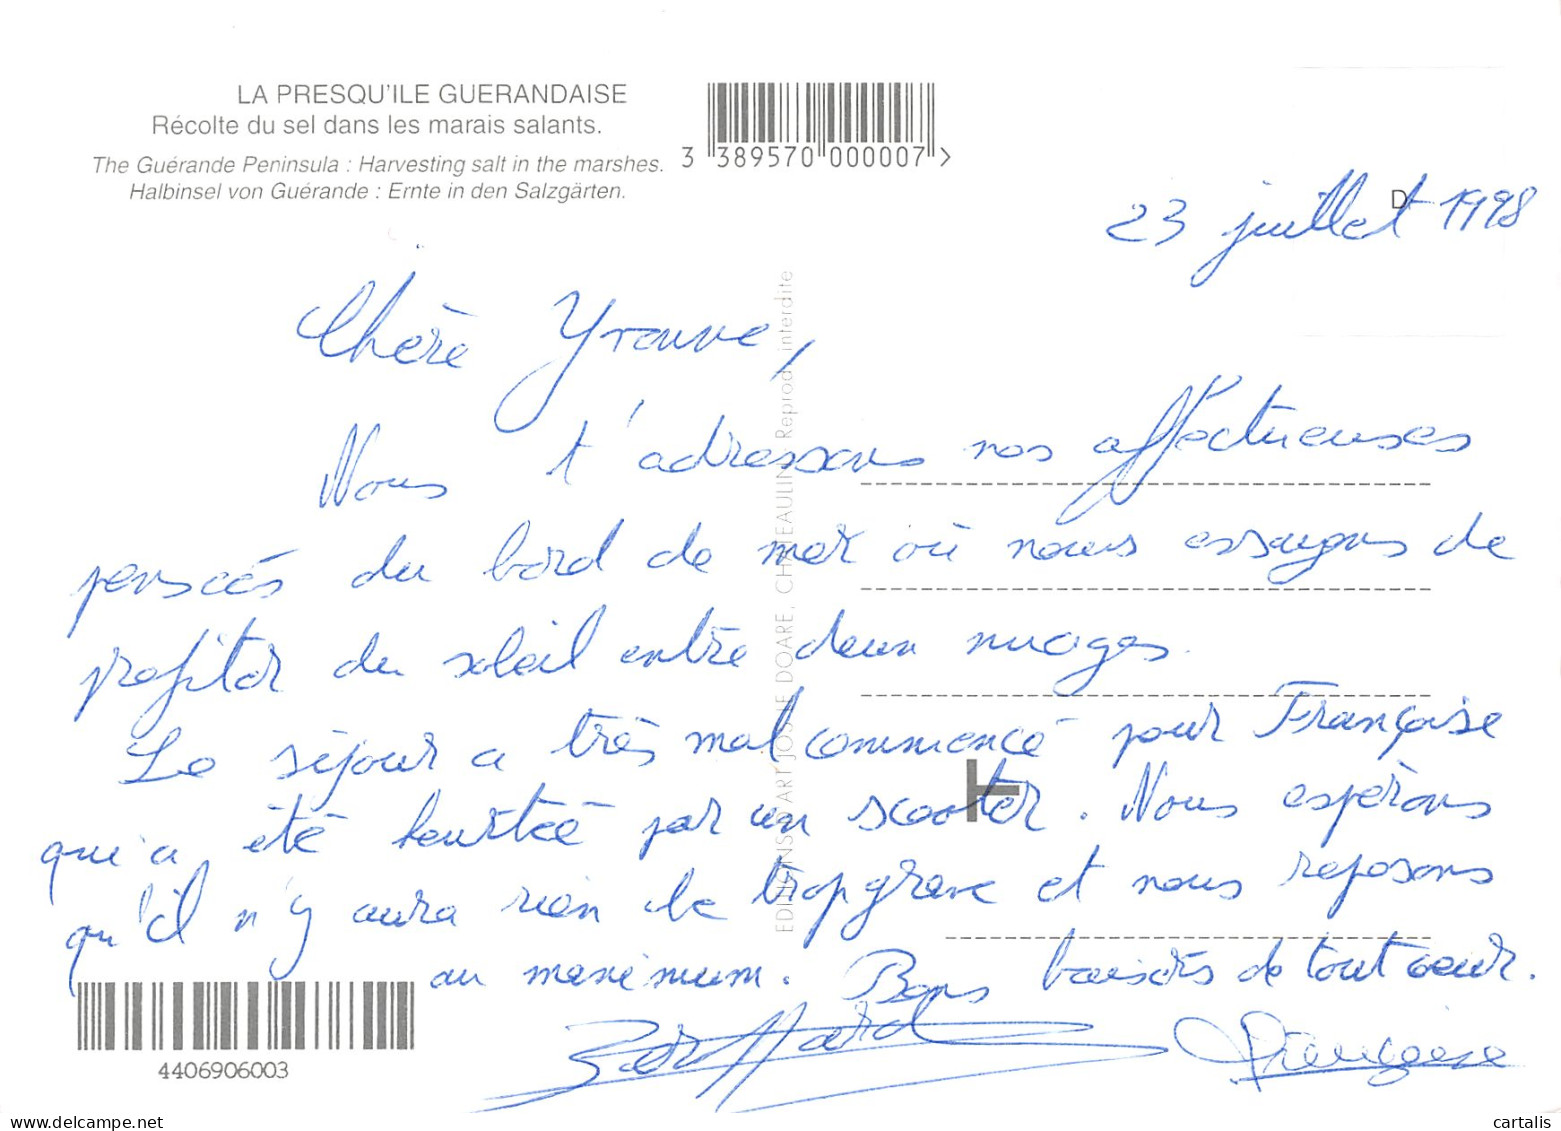 LA PRESQU'ILE GUERANDAISE
Récolte du sel dans les marais salants.
The Guérande Peninsula : Harvesting salt in the marshes.
Halbinsel von Guérande : Ernte in den Salzgärten.
3 389570 000007 >
D.
23 juillet 1998
Chère Yvonne,
Nous t'adressons nos affectueuses
pensées du bord de mer où nous essayons de
profiter du soleil entre deux nuages.
Le séjour a très mal commencé pour Françoise
qui a été heurtée par un scooter. Nous espérons
qu'il n'y aura rien de trop grave et nous reposons
au maximum. Bons baisers de tout coeur.
Françoise
EDITIONS D'ART JOS LE DOARE, CHATEAULIN Reprod. interdite
4406906003
www.delcampe.net
cartalis